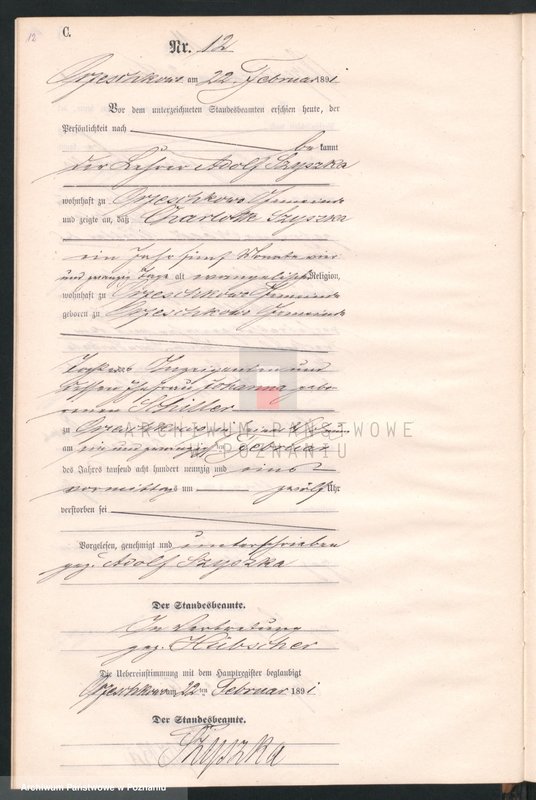 12
C.
Nr. 12
Orzeschkowo am 22. Februar 1891
Vor dem unterzeichneten Standesbeamten erschien heute, der
Persönlichkeit nach be kannt
der Lehrer Adolf Szyszka
wohnhaft zu Orzeschkowo Gemeinde
und zeigte an, daß Charlotte Szyszka
ein Jahr fünf Monate vier
und zwanzig Tage alt evangelischer Religion,
wohnhaft zu Orzeschkowo Gemeinde
geboren zu Orzeschkowo Gemeinde
Tochter des Anzeigenden und
dessen Ehefrau Johanna gebo-
renen Schiller
zu Orzeschkowo
am ein und zwanzigsten Februar
des Jahres tausend acht hundert neunzig und eins
vormittags um zwölf Uhr
verstorben sei
Vorgelesen, genehmigt und unterschrieben
gez. Adolf Szyszka
Der Standesbeamte.
In Vertretung
gez. Hübscher
Die Uebereinstimmung mit dem Hauptregister beglaubigt
Orzeschkowo am 22 ten Februar 1891
Der Standesbeamte.
Szyszka
ARCHIWUM PAŃSTWOWE
W POZNANIU
Archiwum Państwowe w Poznaniu